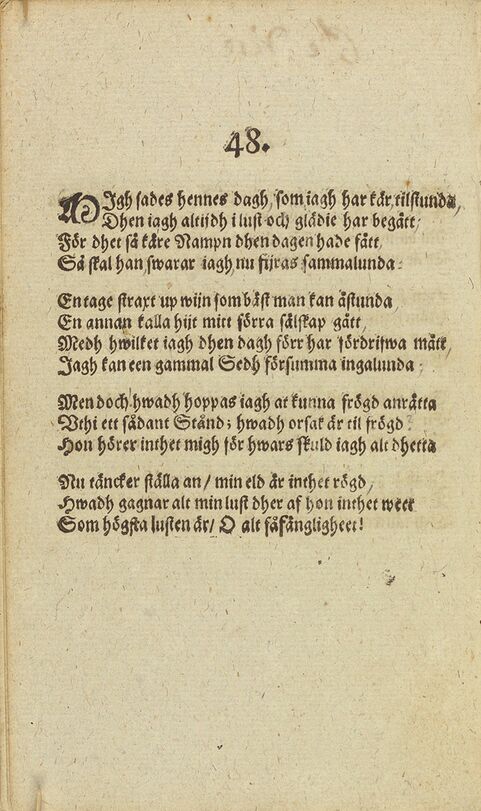 48.
MIgh sades hennes dagh, som iagh har kär, tilstunda,
Dhen iagh altijdh i lust och glädie har begått,
För dhet så käre Nampn dhen dagen hade fått,
Så skal han swarar iagh nu fijras sammalunda:
En tage straxt up wijn som bäst man kan åstunda,
En annan kalla hijt mitt förra sälskap gått,
Medh hwilket iagh dhen dagh förr har fördrifwa mått,
Jagh kan een gammal Sedh försumma ingalunda:
Men doch hwadh hoppas iagh at kunna frögd anrätta
Vthi ett sådant Stånd; hwadh orsak är til frögd:
Hon hörer inthet migh för hwars skuld iagh alt dhetta
Nu täncker ställa an/ min eld är inthet rögd,
Hwadh gagnar alt min lust dher af hon inthet weet
Som högsta lusten är/ O alt fåfängligheet!